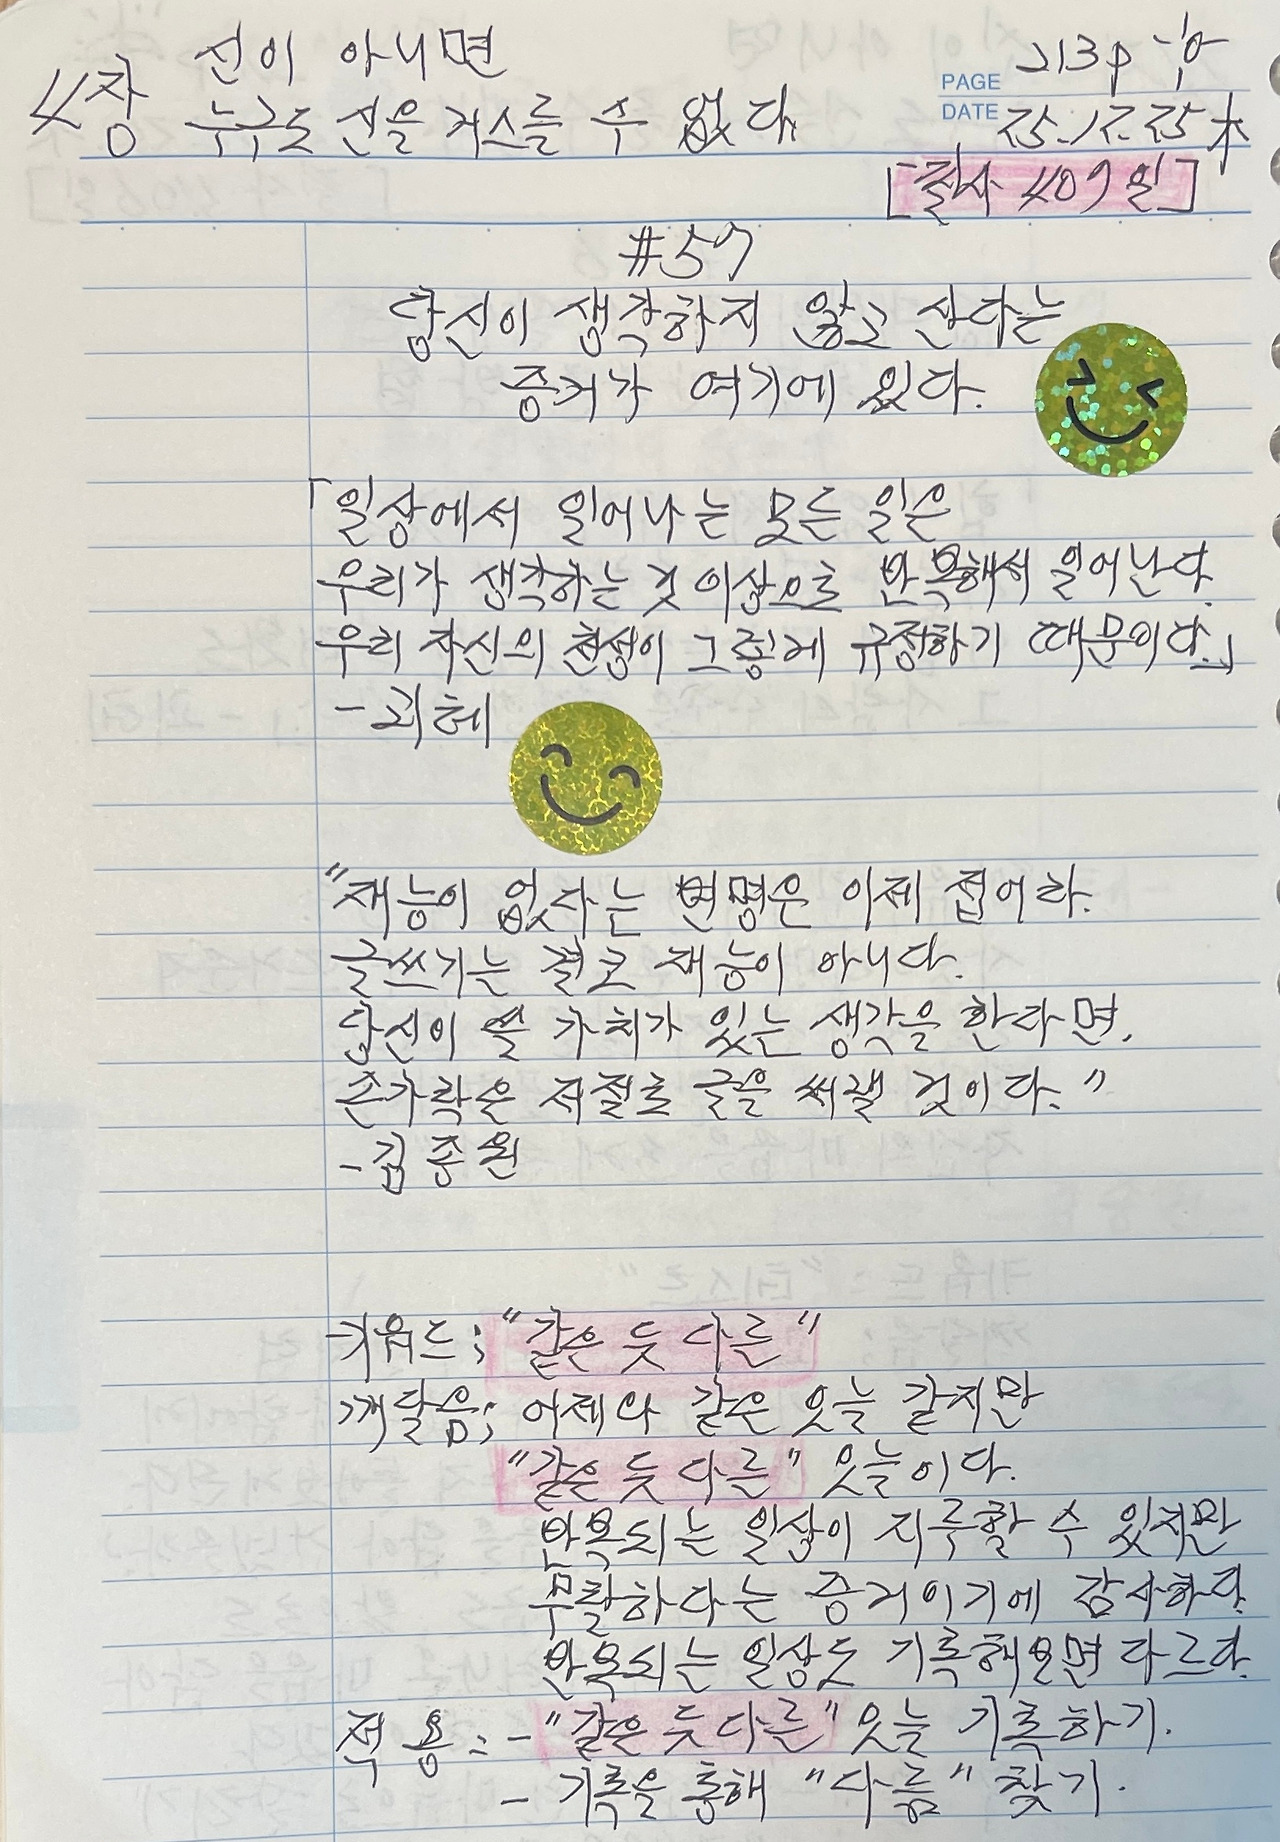 4장 신이 아니면
누구도 신을 거스를 수 없다
PAGE 213p
DATE 25.12.25 木
[필사 409일]
#57
당신이 생각하지 않고 산다는
증거가 여기에 있다.
「일상에서 일어나는 모든 일은
우리가 생각하는 것 이상으로 반복해서 일어난다.
우리 자신의 천성이 그렇게 규정하기 때문이다.」
-괴테
"재능이 없다는 변명은 이제 접어라.
글쓰기는 결코 재능이 아니다.
당신이 쓸 가치가 있는 생각을 한다면,
손가락은 저절로 글을 써낼 것이다."
-김종원
키워드; "같은 듯 다른"
깨달음; 어제와 같은 오늘 같지만
"같은 듯 다른" 오늘이다.
반복되는 일상이 지루할 수 있지만
무탈하다는 증거이기에 감사하다.
반복되는 일상도 기록해보면 다르다.
적용: -"같은 듯 다른" 오늘 기록하기.
- 기록을 통해 "다름" 찾기.